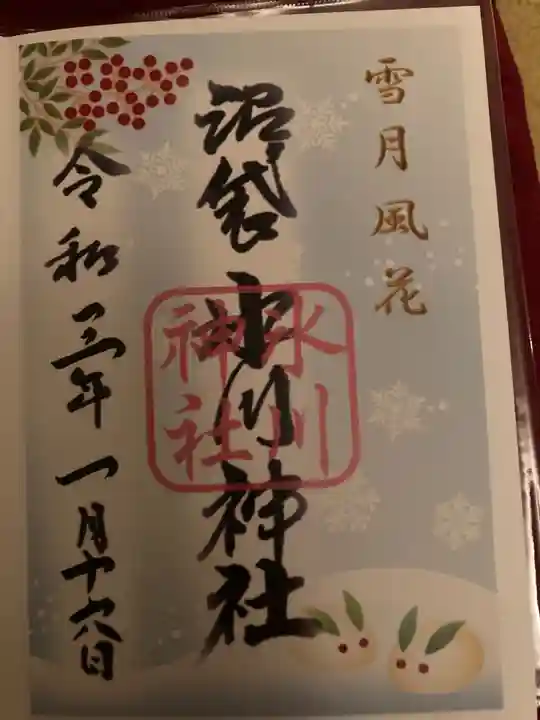 雪月風花
沼袋氷川神社
氷川
神社
令和三年一月十六日